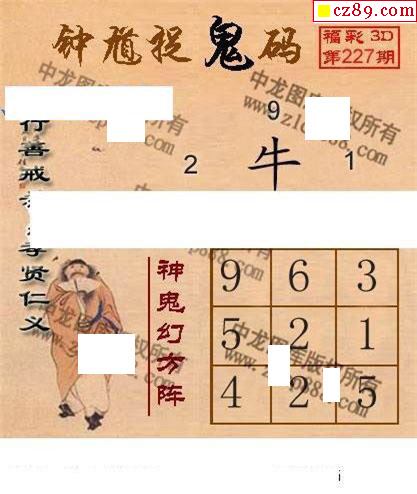 cz89.com
钟馗捉鬼码
福彩 3D
第227期
中龙图库版权所有
9
2
牛
1
行善戒
孝贤仁义
神鬼幻方阵
9 6 3
5 2 1
4 2 5
中龙图库版权所有
i